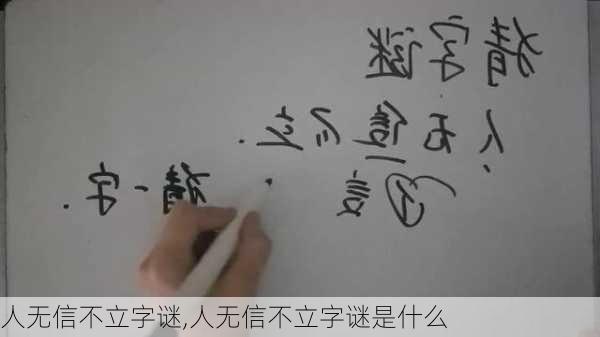 猜字谜
人无信
言
猜一字.
人无信不立字谜,人无信不立字谜是什么